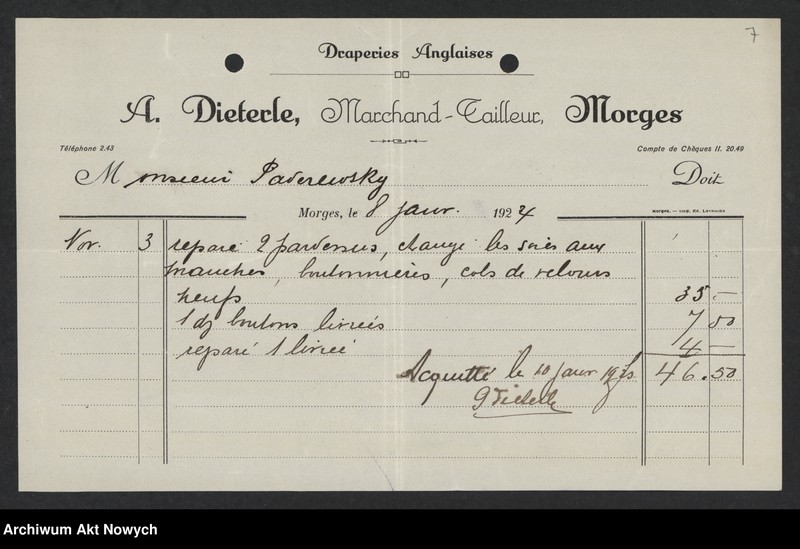 7
Draperies Anglaises
A. Dieterle, Marchand-Tailleur, Morges
Téléphone 2.43
Compte de Chèques II. 20.49
Monsieur Paderewsky Doit
Morges, le 8 janv. 1924
Morges. — Imp. Ed.
Nov. 3 réparé 2 pardessus, changé les soies aux
manches, boutonnières, cols de velours
neufs 35 —
1 dz boutons livrées 7 50
réparé 1 livrée 4 —
Acquitté le 10 janv 46.50
Dieterle
Archiwum Akt Nowych